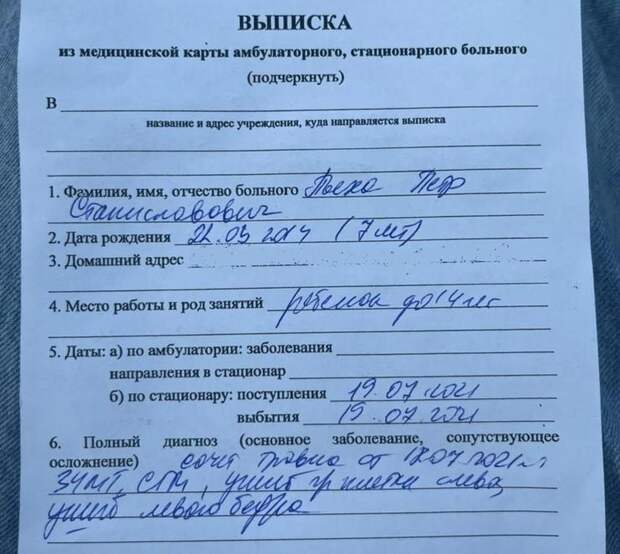 ВЫПИСКА
из медицинской карты амбулаторного, стационарного больного
(подчеркнуть)
В
название и адрес учреждения, куда направляется выписка
1. Фамилия, имя, отчество больного Пьеха Петр
Станиславович
2. Дата рождения 22.03.2014 (7 лет)
3. Домашний адрес
4. Место работы и род занятий ребенок до 14 лет
5. Даты: а) по амбулатории: заболевания
направления в стационар
б) по стационару: поступления 19.07.2021
выбытия 19.07.2021
6. Полный диагноз (основное заболевание, сопутствующее
осложнение) сочет травма от 18.07.2021г
ЗЧМТ, СГМ, ушиб гр клетки слева,
ушиб левого бедра